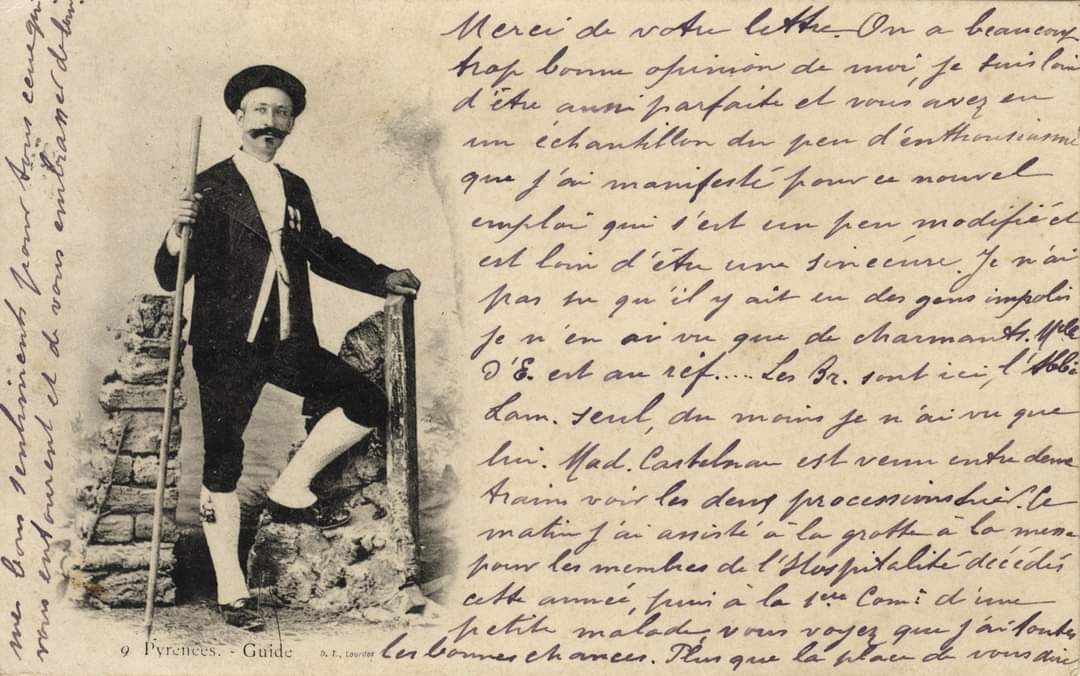 Merci de votre lettre. On a beaucoup
trop bonne opinion de moi, je suis loin
d'être aussi parfaite et vous avez eu
un échantillon du peu d'enthousiasme
que j'ai manifesté pour ce nouvel
emploi qui s'est un peu modifié et
est loin d'être une sinécure. Je n'ai
pas su qu'il y ait eu des gens impolis
je n'en ai vu que de charmants. Mlle
D'E. est au réf.... Les Br. sont ici, l'Abbé
Lam. seul, du moins je n'ai vu que
lui. Mad. Castelnau est venu entre deux
trains voir les deux processions hier. Ce
matin j'ai assisté à la grotte à la messe
pour les membres de l'Hospitalité décédés
cette année, puis à la 1ère Comon d'une
petite malade, vous voyez que j'ai toutes
les bonnes chances. Plus que la place de vous dire
mes bons sentiments pour tous ceux qui
vous entourent et de vous embrasser de
9 Pyrénées. - Guide
D. T., Lourdes